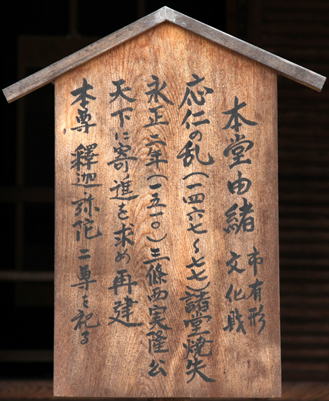 本堂由緒 市有形文化財
応仁の乱(一四六七~七七)諸堂焼失
永正六年(一五一〇)三條西実隆公
天下に寄進を求め再建
本尊 釋迦弥陀二尊を祀る